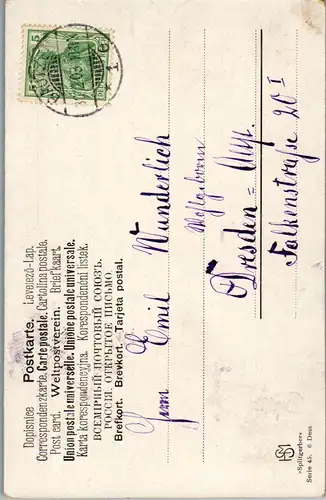 Dopisnice Postkarte. Levelező-Lap.
Correspondenzkarte. Carte postale. Cartolina postale.
Post card. Weltpostverein. Briefkaart.
Union postale universelle. Unione postale universale.
Karta korespondencyjna. Korespondenční lístek.
ВСЕМІРНЫЙ ПОЧТОВЫЙ СОЮЗЪ.
РОССІЯ. ОТКРЫТОЕ ПИСЬМО.
Brefkort. Brevkort. Tarjeta postal.
Herrn Emil Wunderlich
Wohlgeboren
Dresden = Alt.
Falkenstraße 20 I
»Splitgerber«
Serie 45. 6 Dess